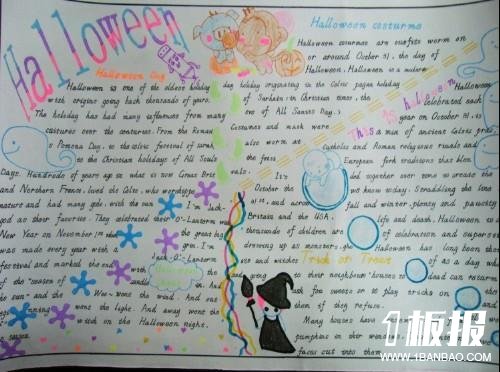 Halloween
Halloween Day
Halloween is one of the oldest holiday
with origins going back thousands of years.
The holiday has had many influences from many
cultures over the centuries. From the Roman's
Pomona Day, to the Celtic festival of
to the Christian holidays of All Souls
Days. Hundreds of years ago in what is now Great Britain
and Northern France, lived the Celts, who worshipped
nature and had many gods, with the sun
god as their favorite. They celebrated their
New Year on November 1st
was made every year with a
festival and marked the end
of the "season of
the sun" and the
Halloween costumes
Halloween costumes are outfits worn on
or around October 31, the day of
Halloween. Halloween is a modern
day holiday originating in the Celtic pagan holiday
of Samhain (in Christian times, the
eve of All Saints Day).
Costumes and mask were
also worn at
the fess
It's
October the
31st, and across
Britain and the USA,
thousands of children are
dressing up as monsters, ghosts
and witches
and going to their neighbours' houses to
ask for sweets or to play tricks on
them if they refuse.
Many houses have
pumpkins in their windows.
faces cut into them
I'm Jack-
O'-Lantern
the great big
grin. I'm
Jack-O'-Lantern
in the
wind. And
went the light. And away went the
witch on the Halloween night.
Trick or Treat
This is halloween
Halloween
celebrated each
year on October 31, is
a mix of ancient Celtic practices,
Catholic and Roman religious rituals and
European folk traditions that blended
together over time to create the
we know today. Straddling the line
fall and winter, plenty and paucity
life and death, Halloween is
of celebration and superstition.
Halloween has long been thought
of as a day when
dead can return
1板报
WWW.1BANBAO.COM